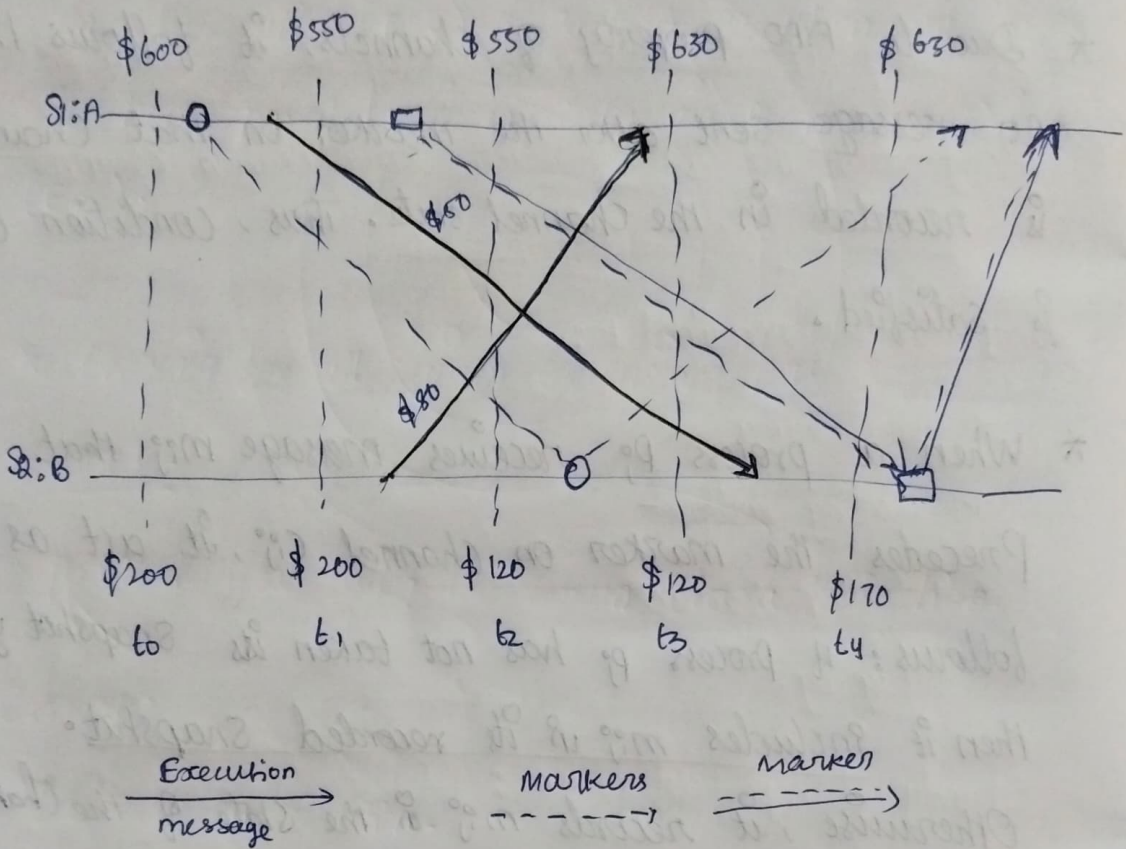 $600 $550 $550 $630 $630
S1:A
$50
$80
S2:B
$200 $200 $120 $120 $170
t0 t1 t2 t3 t4
Execution
message
markers
marker